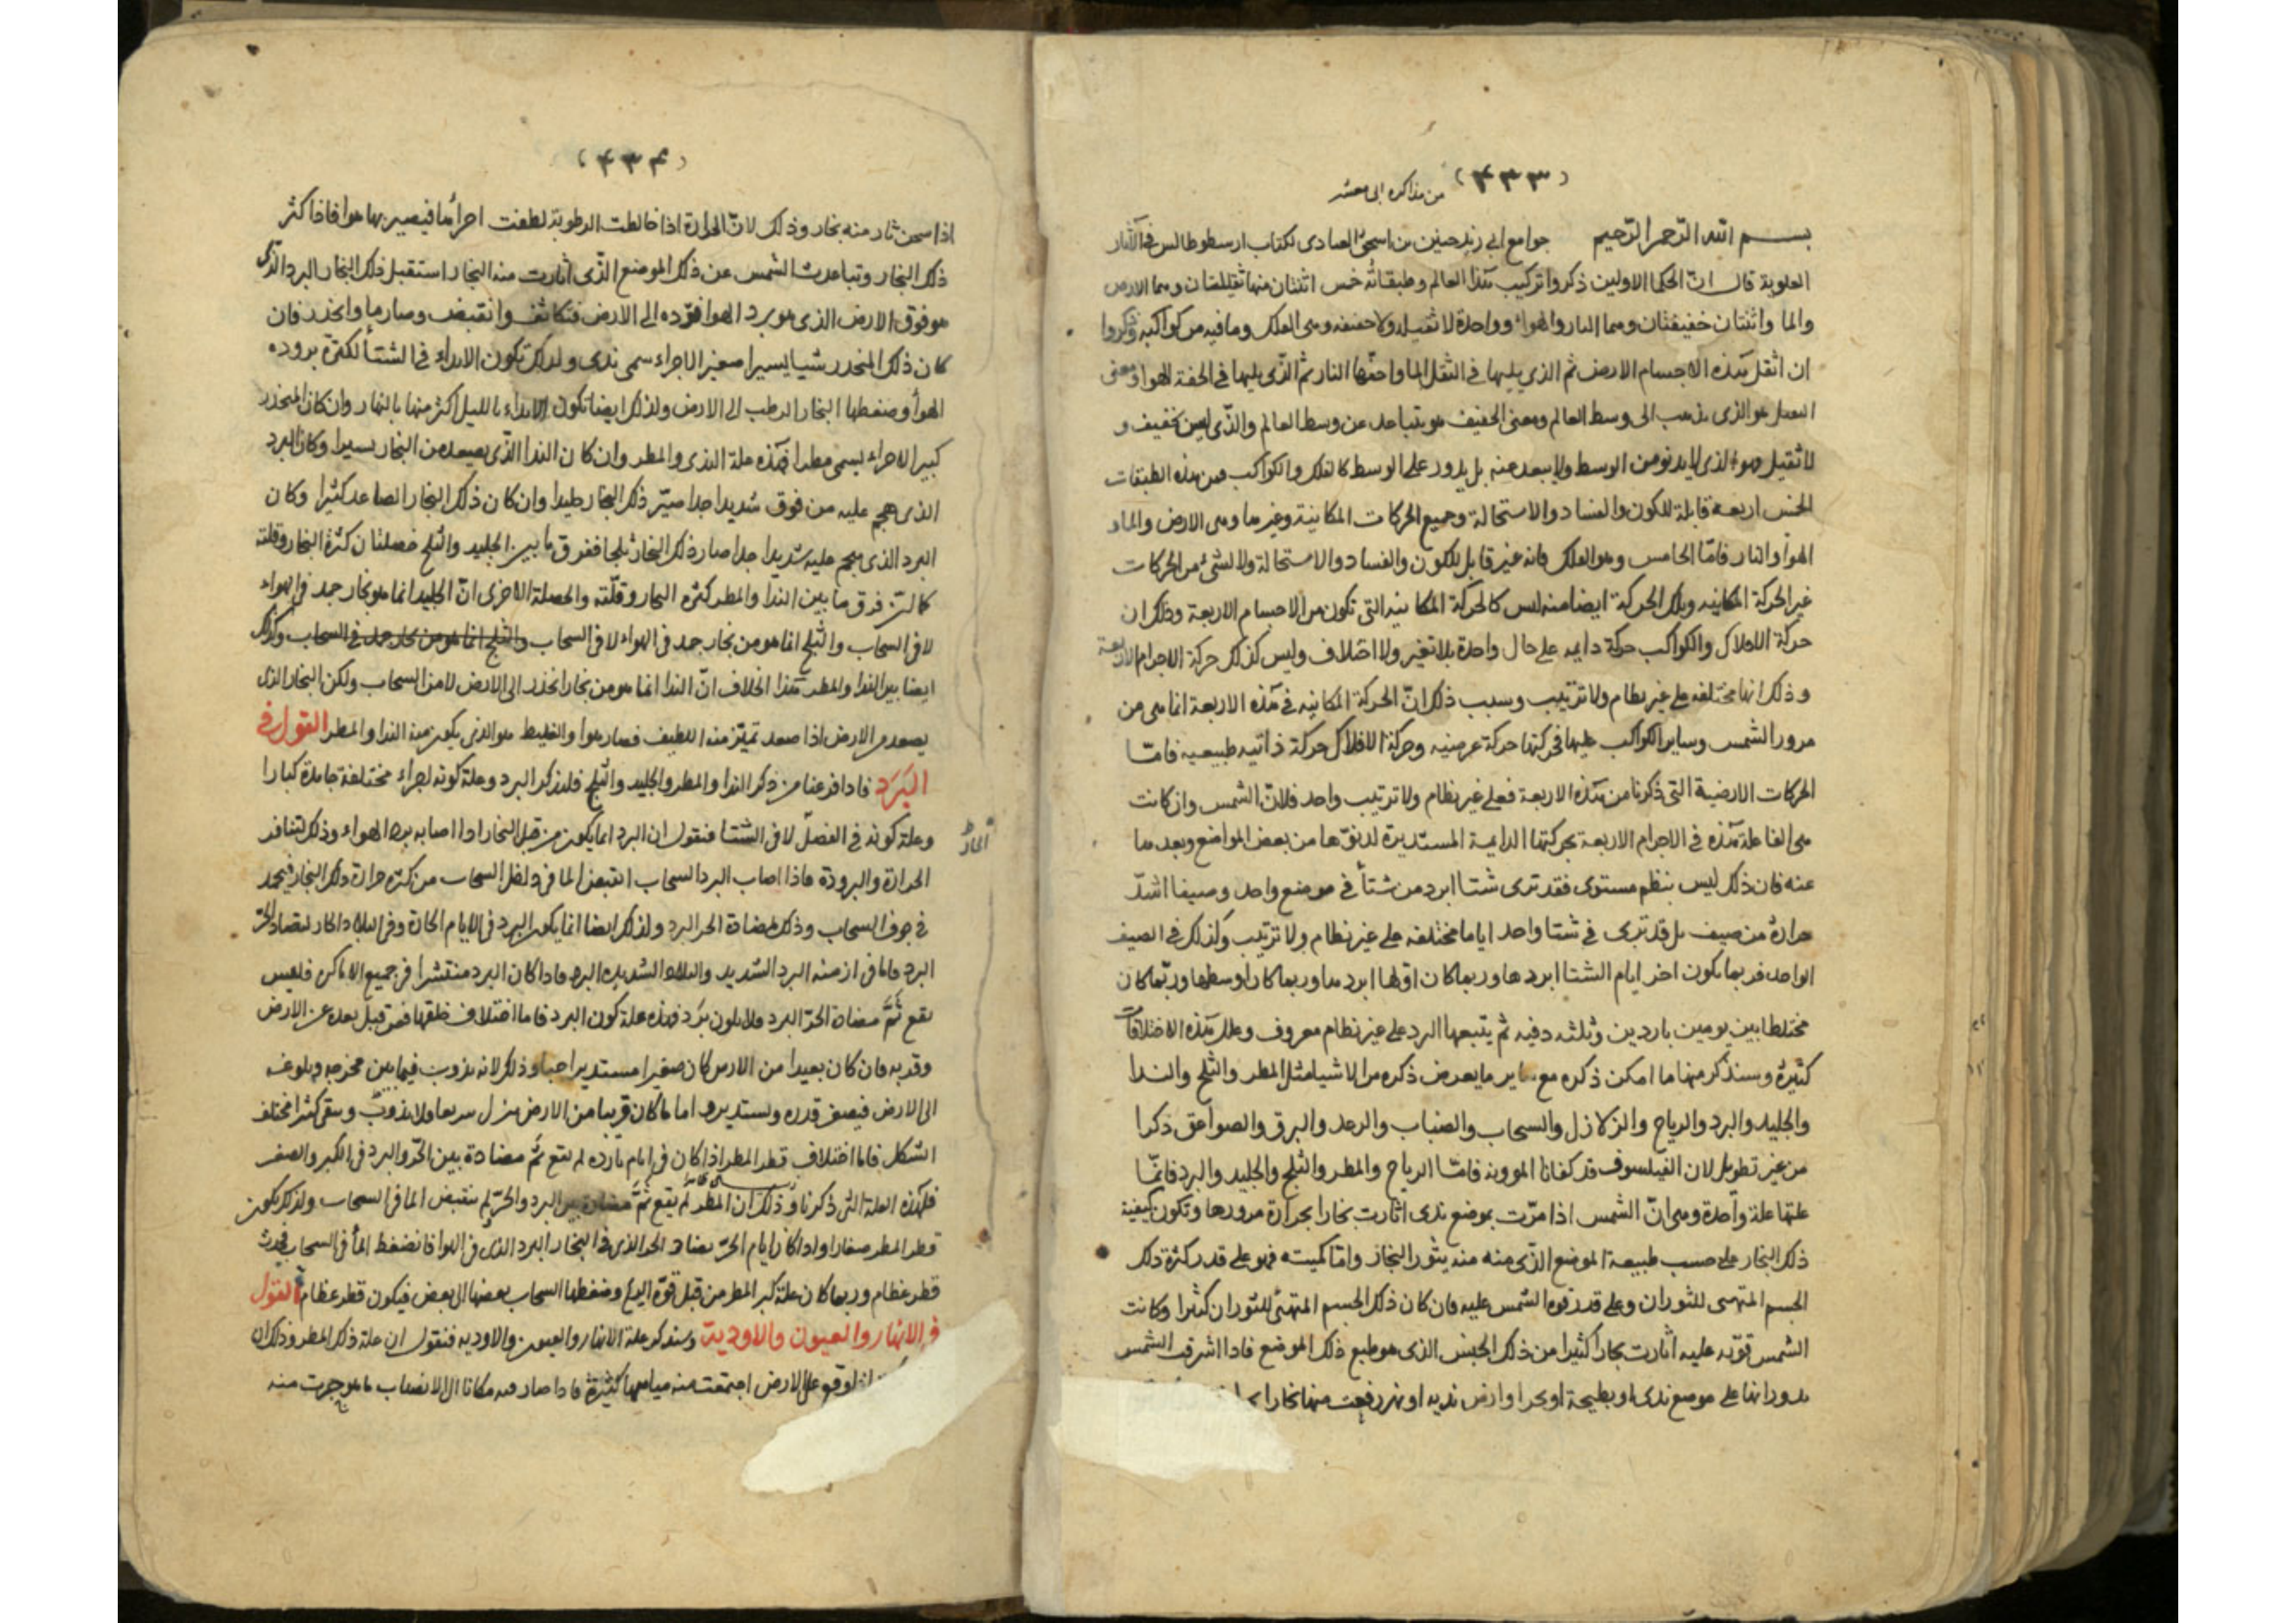 (٤٣٣)
من مذاكره ابى معشر
بسم الله الرحمن الرحيم جوامع ابى زيد حنين بن اسحق العبادى لكتاب ارسطوطالس فى الآثار
العلوية قال ان الحكما الاولين ذكروا تركيب هذا العالم وطبقاته خمس اثنتان منها ثقيلتان وهما الارض
والما واثنتان خفيفتان وهما النار والهواء وواحدة لا ثقيلة ولا خفيفه وهى الفلك وما فيه من كواكبه وذكروا
ان اثقل هذه الاجسام الارض ثم الذى يليها فى الثقل الما واخفها النار ثم الذى يليها فى الخفة الهوا ومعنى
الثقيل هو الذى يذهب الى وسط العالم ومعنى الخفيف هو يتباعد عن وسط العالم والذى ليس بخفيف و
لا ثقيل وهو الذى لا يدنو من الوسط ولا يبعد عنه بل يدور على الوسط كالفلك والكواكب فمن هذه الطبقات
الخمس اربعة قابلة للكون والفساد والاستحالة وجميع الحركات المكانية وغيرها وهى الارض والماء
الهوا والنار فامّا الخامس وهو الفلك فانه غير قابل للكون والفساد والاستحالة ولا لشئ من الحركات
غير الحركة المكانيه وتلك الحركة ايضا منه ليس كالحركة المكانيه التى تكون من الاجسام الاربعة وذلك ان
حركة الافلاك والكواكب حركة دايمه على حال واحدة بلا تغير ولا اختلاف وليس كذلك حركة الاجرام الاربعة
وذلك انها مختلفه على غير نظام ولا ترتيب وسبب ذلك انّ الحركة المكانيه فى هذه الاربعة انما هى من
مرور الشمس وساير الكواكب عليها فحركتها حركة عرضيه وحركة الافلاك حركة ذاتيه طبيعيه فامّا
الحركات الارضية التى ذكرنا من هذه الاربعة فعلى غير نظام ولا ترتيب واحد فلانّ الشمس وان كانت
هى الفاعلة هذه فى الاجرام الاربعة بحركتها الدايمة المستديرة لدنوّها من بعض المواضع وبعدها
عنه فان ذلك ليس بنظم مستوى فقد ترى شتا ابرد من شتأ فى موضع واحد وصيفا اشدّ
حرارة من صيف بل قد ترى فى شتا واحد اياما مختلفه على غير نظام ولا ترتيب وكذلك فى الصيف
الواحد فربما يكون اخر ايام الشتا ابردها وربما كان اولها ابردها وربما كان اوسطها وربّما كان
مختلطا بين يومين باردين وثلثه دفيه ثم يتبعها البرد على غير نظام معروف وعلل هذه الاختلافات
كثيرة وسنذكر منها ما امكن ذكره مع ساير ما يعرض ذكره من الاشيا مثل المطر والثلج والندا
والجليد والبرد والرياح والزلازل والسحاب والضباب والرعد والبرق والصواعق ذكرا
من غير تطويل لان الفيلسوف قد كفانا المؤونه فامّا الرياح والمطر والثلج والجليد والبرد فانّما
علتها علة واحدة وهى انّ الشمس اذا مرّت بموضع ندى اثارت بخارا بحرارة مرورها وتكون كيفية
ذلك البخار على حسب طبيعة الموضع الذى منه منه يثور البخار وامّا كميته فهو على قدر كثرة ذلك
الجسم المتهيئ للثوران وعلى قدر قوة الشمس عليه فان كان ذلك الجسم المتهيئ للثوران كثيرا وكانت
الشمس قويّه عليه اثارت بخارا كثيرا من ذلك الجنس الذى هو طبع ذلك الموضع فاذا اشرقت الشمس
بدورانها على موضع ندى او بطيحة او بحر او ارض نديه او نهر رفعت منها بخارا
(٤٣٤)
اذا سخن ثار منه بخار وذلك لانّ الحرارة اذا خالطت الرطوبة لطفت اجزائها فيصير بها هوا فاذا كثر
ذلك البخار وتباعدت الشمس عن ذلك الموضع الذّى اثارت منه البخار استقبل ذلك البخار البرد الذى
هو فوق الارض الذى هو برد الهوا فردّه الى الارض فتكاثف وانقبض وصار ما وانحدر فان
كان ذلك المنحدر شيا يسيرا صغير الاجزاء سمى ندى ولذلك تكون الانداء فى الشتأ لكثرة بروده
الهوأ وضغطها البخار الرطب الى الارض ولذلك ايضا تكون الانداء بالليل اكثر منها بالنهار وان كان المنحدر
كبير الاجزاء يسمى مطرا فهذه علة الندى والمطر وان كان الندا الذّى يصعد من البخار يسيرا وكان البرد
الذى هجم عليه من فوق شديدا جدا صيّر ذلك البخار جليدا وان كان ذلك البخار الصاعد كثيرا وكان
البرد الذى هجم عليه شديدا جدا صار ذلك البخار ثلجا ففرق ما بين الجليد والثلج خصلتان كثرة البخار وقلته
كالتى فرق ما بين الندا والمطر كثره البخار وقلّته والخصلة الاخرى انّ الجليد انما هو بخار جمد فى الهواء
لا فى السحاب والثلج انما هو من بخار جمد فى الهواء لا فى السحاب والثلج انما هو من بخار جمد فى السحاب وكذلك
ايضا بين الندا والمطر هذا الخلاف انّ الندا انما هو من بخار انحدر الى الارض لا من السحاب ولكن البخار الذى
يصعد من الارض اذا صعد تميّز منه اللطيف فصار هوا والغليظ هو الذى يكون منه الندا والمطر القول فى
البَرَد فاذا فرغنا من ذكر الندا والمطر والجليد والثلج فلنذكر البرد وعلة كونه اجزاء مختلفة جامدة كبارا
وعلة كونه فى الفصل لا فى الشتا فنقول ان البرد انما يكون من قبل البخار اذا اصابه برد الهواء وذلك لتنافر
الحرارة والبرودة فاذا اصاب البرد السحاب انقبض الما فى داخل السحاب من كثره حرارة ذلك البخار فيجمد
فى جوف السحاب وذلك لمضادة الحر البرد ولذلك ايضا انما يكون البرد فى الايام الحارة وفى البلاد الحار لتضاد الحرّ
البرد فاما فى ازمنه البرد الشديد والبلاد الشديده البرد فاذا كان البرد منتشرا فى جميع الاماكن فليس
يقع ثمّ مضادة الحرّ البرد فلا يكون بَرَد فهذه علة كون البرد فاما اختلاف خلقها فمن قبل بعده عن الارض
وقربه فان كان بعيدا من الارض كان صغيرا مستديرا حبا وذلك لانه يذوب فيما بين مخرجه وبلوغه
الى الارض فيصغر قدره ويستدير واما ما كان قريبا من الارض ينزل سريعا ولا يذوب ويبقى كثيرا مختلف
الشكل فاما اختلاف قطر المطر اذا كان فى ايام بارده لم يقع ثمّ مضادة بين الحرّ والبرد فى الكبر والصغر
فلهذه العلة التى ذكرنا وذلك ان المطر لم يقع ثمّ مضادة بين البرد والحرّ لم ينقبض الما فى السحاب ولذلك يكون
قطر المطر صغارا واذا كان ايام الحرّ يضاد الحر الذى فى البخار البرد الذى فى الهوا فانضغط المأ فى السحاب فحدث
قطر عظام وربما كان علة كبر المطر من قبل قوّة الريح وضغطها السحاب بعضها الى بعض فيكون قطر عظام القول
فى الانهار والعيون والاودية وسنذكر علة الانهار والعيون والاوديه فنقول ان علة ذكر المطر وذلك ان
اذا وقع على الارض اجتمعت منه مياها كثيرة فاذا صار فيه مكانا الى الانصباب ما هو جرت منه